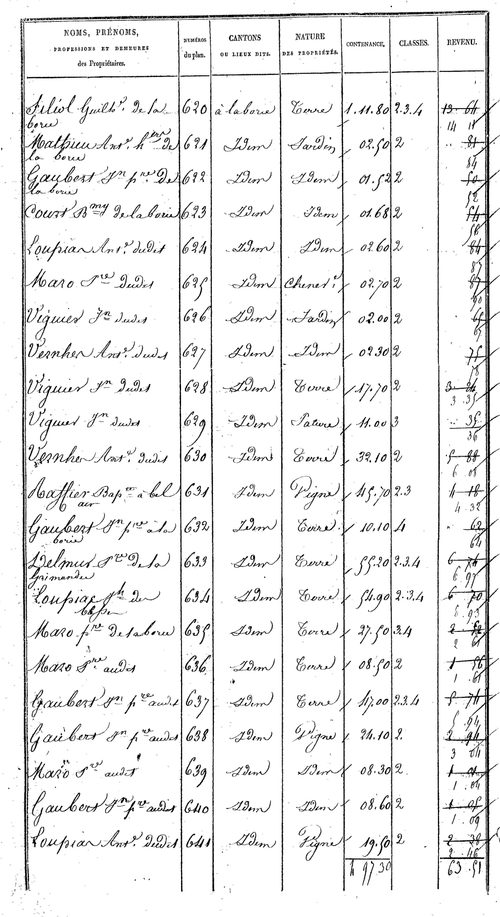 NOMS, PRÉNOMS, PROFESSIONS ET DEMEURES des Propriétaires. NUMÉROS du plan. CANTONS OU LIEUX DITS. NATURE DES PROPRIÉTÉS. CONTENANCE. CLASSES. REVENU.
Filiol Guilh.e de la borie 620 à la borie Terre 1.11.80 2.3.4 13 64 14 11
Mathieu Ant.e h.ers de la borie 621 Idem Jardin 02.50 2 81 84
Gaubert Jn pre De la borie 622 Idem Idem 01.52 2 50 52
Court Bmy de la borie 623 Idem Idem 01.68 2 54 56
Loupiar Ant.e dudit 624 Idem Idem 02.60 2 84 87
Maro Pre dudit 625 Idem Chenev.e 02.70 2 87 90
Viguier Jn dudit 626 Idem Jardin 02.00 2 65
Vernher Ant.e dudit 627 Idem Idem 02.30 2 75 78
Viguier Jn dudit 628 Idem Terre 17.70 2 3 35
Viguier Jn dudit 629 Idem Pature 11.00 3 35 36
Vernher Ant.e dudit 630 Idem Terre 32.10 2 5 88 6 08
Raffier Bap. à bel air 631 Idem Vigne 45.70 2.3 4 18 4 32
Gaubert Jn pre à la borie 632 Idem Terre 10.10 4 62 64
Delmur Pre De la Grimardie 633 Idem Terre 55.20 2.3.4 6 74 6 97
Loupiac 634 Idem Terre 54.90 2.3.4 6 70 6 93
Maro pre De la borie 635 Idem Terre 27.50 3.4 2
Maro Pre audit 636 Idem Terre 08.50 2 1 56 1 61
Gaubert Jn pre audit 637 Idem Terre 47.00 2.3.4 5 74 5 94
Gaubert Jn pre audit 638 Idem Vigne 24.10 2. 2 94 3 04
Maro Pre audit 639 Idem Idem 08.30 2 1 01 1 04
Gaubert Jn pre audit 640 Idem Idem 08.60 2 1 05 1 09
Loupiar Ant.e dudit 641 Idem Vigne 19.50 2 2 38 2 46
4 97 30 63 51